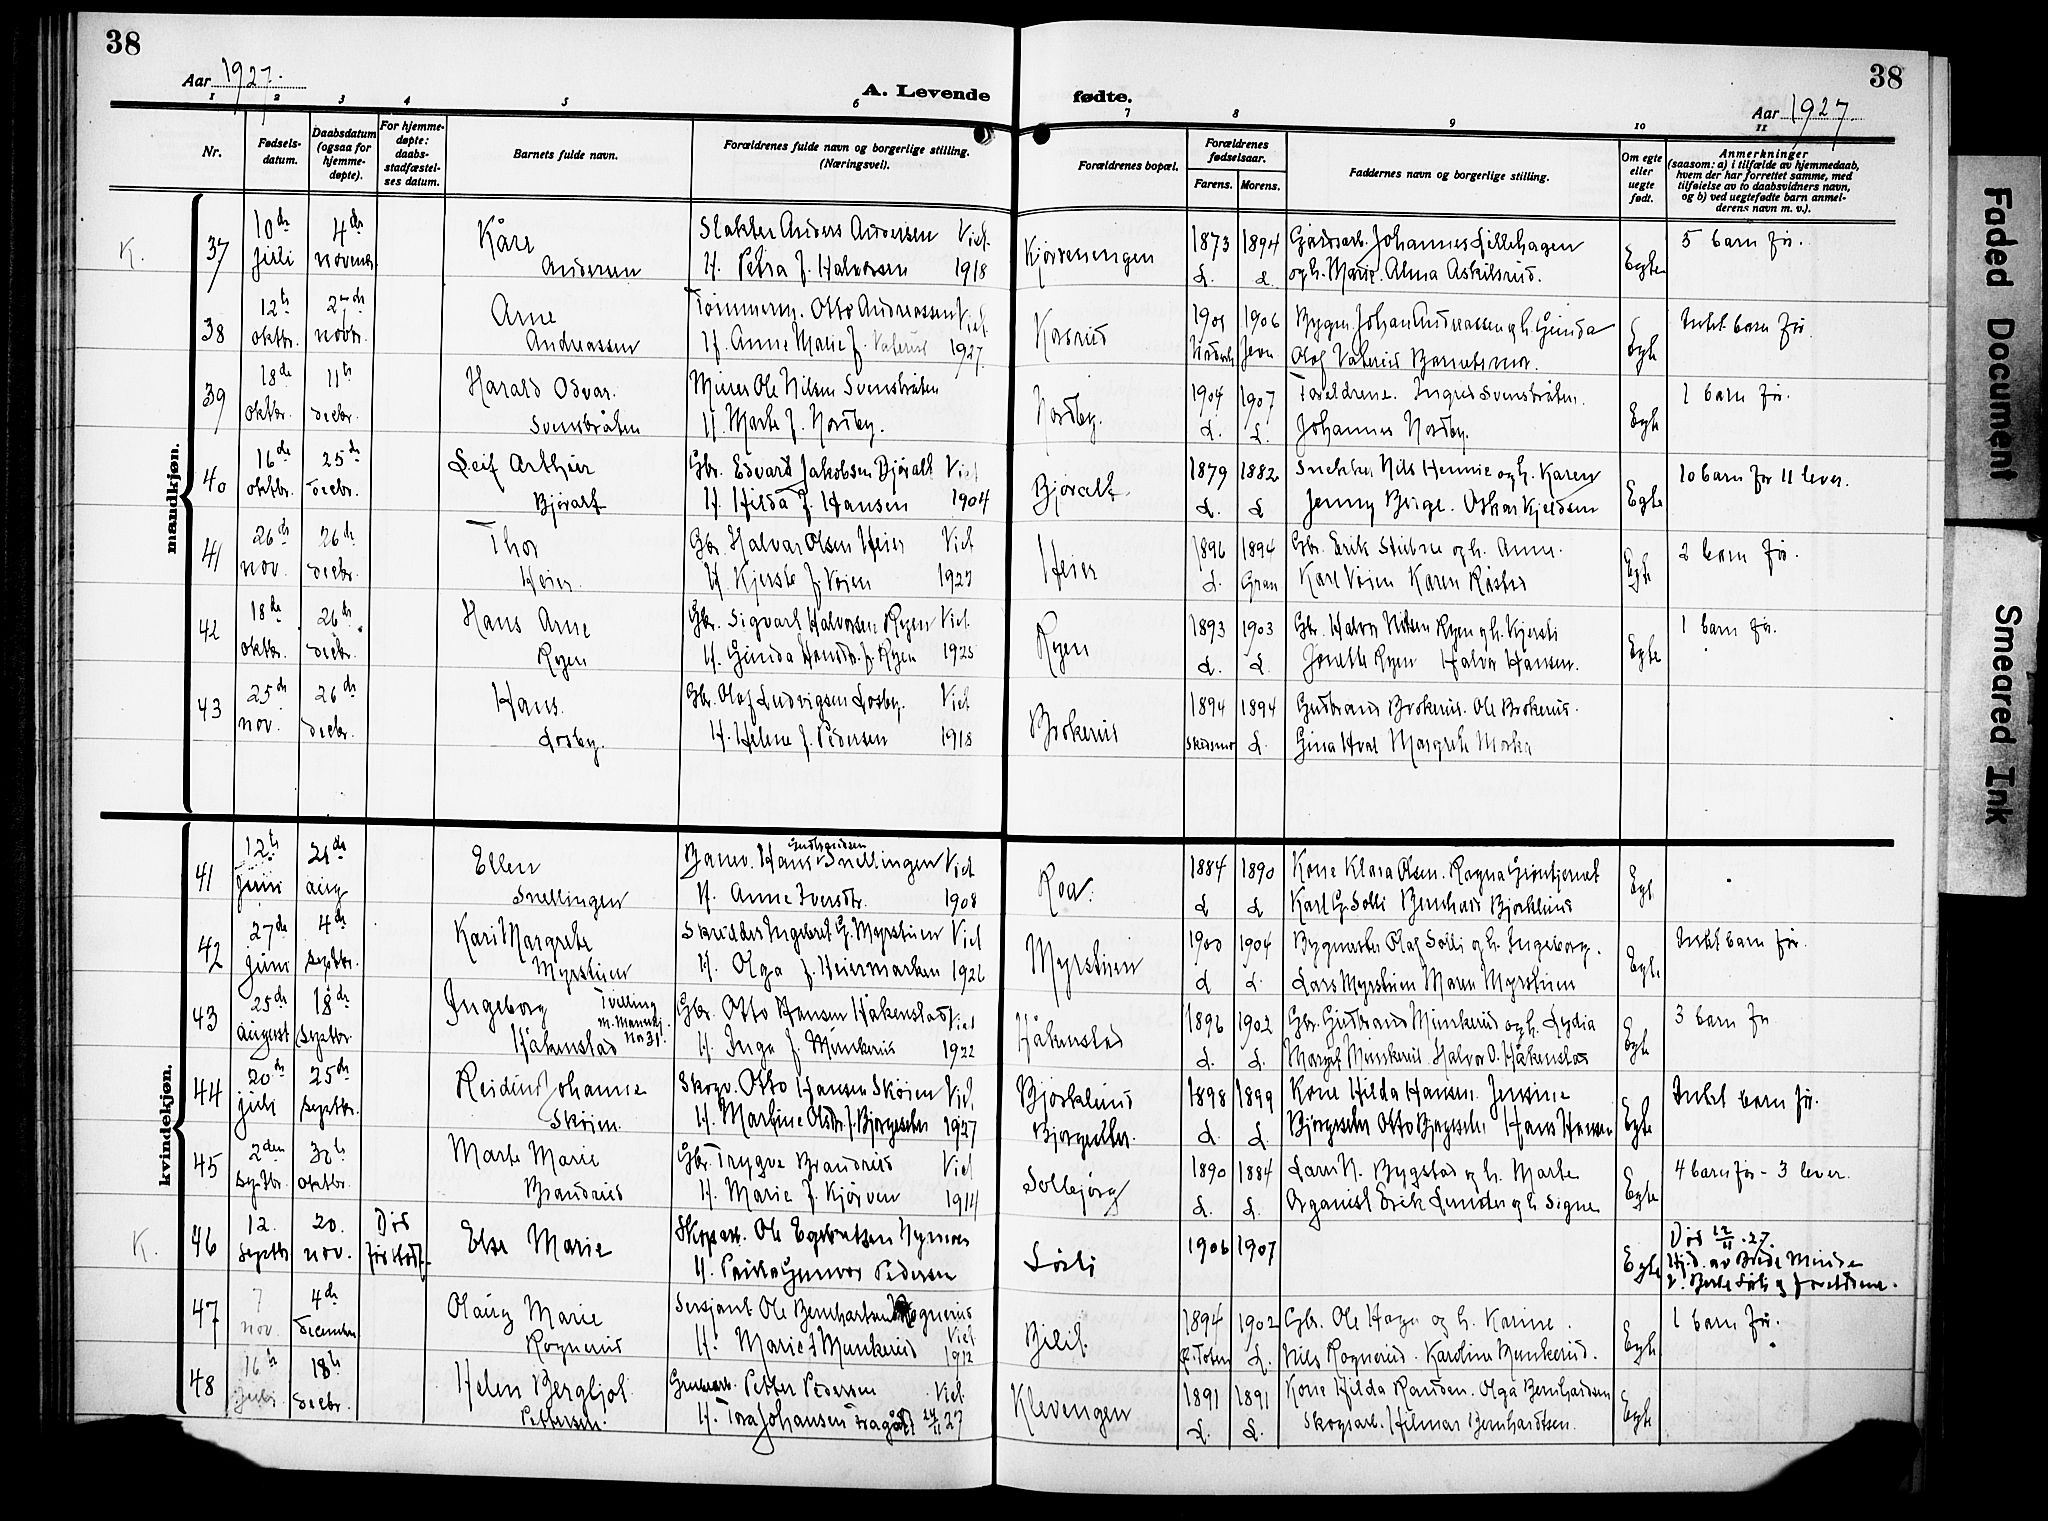 38
38
Aar 1927.
A. Levende fødte.
Aar 1927
1 2 3 4 5 6 7 8 9 10 11
Nr.
Fødsels-
datum.
Daabsdatum
(ogsaa for
hjemme-
døpte).
For hjemme-
døpte:
daabs-
stadfæstel-
ses datum.
Barnets fulde navn.
Forældrenes fulde navn og borgerlige stilling.
(Næringsvei).
Forældrenes bopæl.
Forældrenes
fødselsaar.
Farens. Morens.
Faddernes navn og borgerlige stilling.
Om egte
eller
uegte
født.
Anmerkninger
(saasom: a) i tilfælde av hjemmedaab,
hvem der har forrettet samme, med
tilføielse av to daabsvidners navn,
og b) ved uegtefødte barn anmel-
derens navn m. v.).
mandkjøn.
K. 37 10de 4de Kåre Slakter Anders Andersen Viet 1873 1894 Johannes Lillehagen 5 barn før.
juli novembr Andersen H. Petra f. Halvorsen 1918 L. L. og h. Marie. Alma Askilsrud. Egte
38 12te 27de Arne Otto Andreassen Viet 1906 Johan Andreassen og h. Gunda Intet barn før.
oktbr. novbr. Andreassen H. Anne Marie f. 1927. Olaf Barnets mor. Egte
39 18de 11te Harald Odvar. Murer Ole Nilsen Svensbråten Nordby. 1904 1907 Foreldrene. Ingrid Svensbråten. 1 barn før.
oktbr. decbr. Svensbråten H. Marte f. Nordby. L. L. Johannes Nordby. Egte
40 16de 25de Leif Arthur Gbr. Edvard Jakobsen Bjøralt Viet Bjøralt. 1879 1882 Snekker Nils Hennie og h. Karen 10 barn før 11 lever.
oktbr. decbr. Bjøralt H. Hilda f. Hansen 1904 L. L. Jenny Borge. Oskar Kjeldsen Egte
41 26de 26de Thor Gbr. Halvar Olsen Heier Viet Heier 1896 1894 Gbr. Erik og h. Anne. 2 barn før.
nov. decbr. Heier. H. Kjerste f. Vøien 1923 L. Gran Karl Vøien Karen Råstad Egte
42 18de 26de Hans Arne Gbr. Sigvart Halvorsen Ryen Viet. Ryen 1893 1903 Gbr. Halvor Nilsen Ryen og h. Kjersti 1 barn før.
oktbr. decbr. Ryen H. Gunda f. Ryen 1925 L. L. Ryen Halvor Hansen. Egte
43 25de 26de Hans. Gbr. Olaf Ludvigsen Losby. Viet Brokerud 1894 1894 Gudbrand Brokerud. Ole Brokerud.
nov. decbr. Losby. H. Helene f. Pedersen 1918 L. Gina Hval Margrete
kvindekjøn.
41 12te 21de Ellen Gudbrandsen
Hans Snellingen Viet Roa. 1884 1890 Kone Klara Olsen. Ragna Grøntjernet
juni aug Snellingen H. Anne Iversdtr. 1908 L L Karl G. Solli Bernhard Bjørklund Egt.
42 27de 4de Kari Margrete Skrædder Ingebret G. Myrstuen Viet Myrstuen 1900 1904 Bygmester Olaf Solli og h. Ingeborg. Intet barn før.
juni septbr. Myrstuen H. Olga f. Heiermarken 1926 L L. Lars Myrstuen Maren Myrstuen Egte
43 25de 18de Ingeborg Tvilling
Gbr. Otto Hansen Håkenstad Viet Håkenstad 1896 1902 Gbr. Gudbrand Munkerud og h. Lydia 3 barn før
august septbr. Håkenstad H. Inga f. Munkerud 1922 L. L. Margit Munkerud. Halvor O. Håkenstad Egte
44 20de 25de Reidun Johanne Skogv. Otto Hansen Skøien Viet. Bjørklund 1898 1899 Kone Hilda Hansen. Jensine Intet barn før.
juli septbr. Skøien. H. Martine Olsdtr. f. Bjørgeseter 1927 Bjørgeseter. L. L. Bjørgeseter Otto Bjørgeseter Hans Hansen Egte
45 2den 30te Marte Marie Gbr. Trygve Brandrud Viet Solbjørg 1890 1884 Lars N. Bygstad og h. Marte 4 barn før - 3 lever.
septbr. oktbr. Brandrud H. Marie f. Kjørven 1914 L. L. Organist Erik Lunder og h. Signe Egte
K. 46 12. 20. Død Else Marie Skogsarb. Ole Egebretsen 1906 1907 Død 12/11.27.
septbr nov. H. Gunvor Pedersen Egte Hj.d. av
47 7 4de Olaug Marie Sersjant Ole Bernhartsen Rognerud 1894 1902 Gbr. Ole Haga og h. Karine. 1 barn før.
nov. december Rognerud H. Marie f. Munkerud Viet
1912 Ø. Toten L. Nils Rognerud. Karoline Munkerud. Egte
48 16de 18de Helen Bergljot Petter Pedersen Viet Klevengen 1891 1891 Kone Hilda Randen. Olga Bernhardsen
juli decbr. Pettersen. H. Tora Johansen 24/11 27 L. L. Skogsarb. Hilmar Bernhardtsen. Egte
Faded Document
Smeared Ink